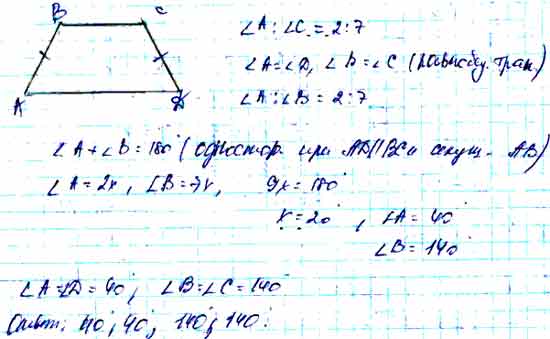 B C
A D
∠A : ∠C = 2:7
∠A = ∠D, ∠B = ∠C (равнобед. трап)
∠A : ∠B = 2:7
∠A + ∠B = 180° (одностор. при AD||BC и секущ. AB)
∠A = 2x, ∠B = 7x, 9x = 180°
x = 20°, ∠A = 40°
∠B = 140°
∠A = ∠D = 40°, ∠B = ∠C = 140°
Ответ: 40°, 40°, 140°, 140°.